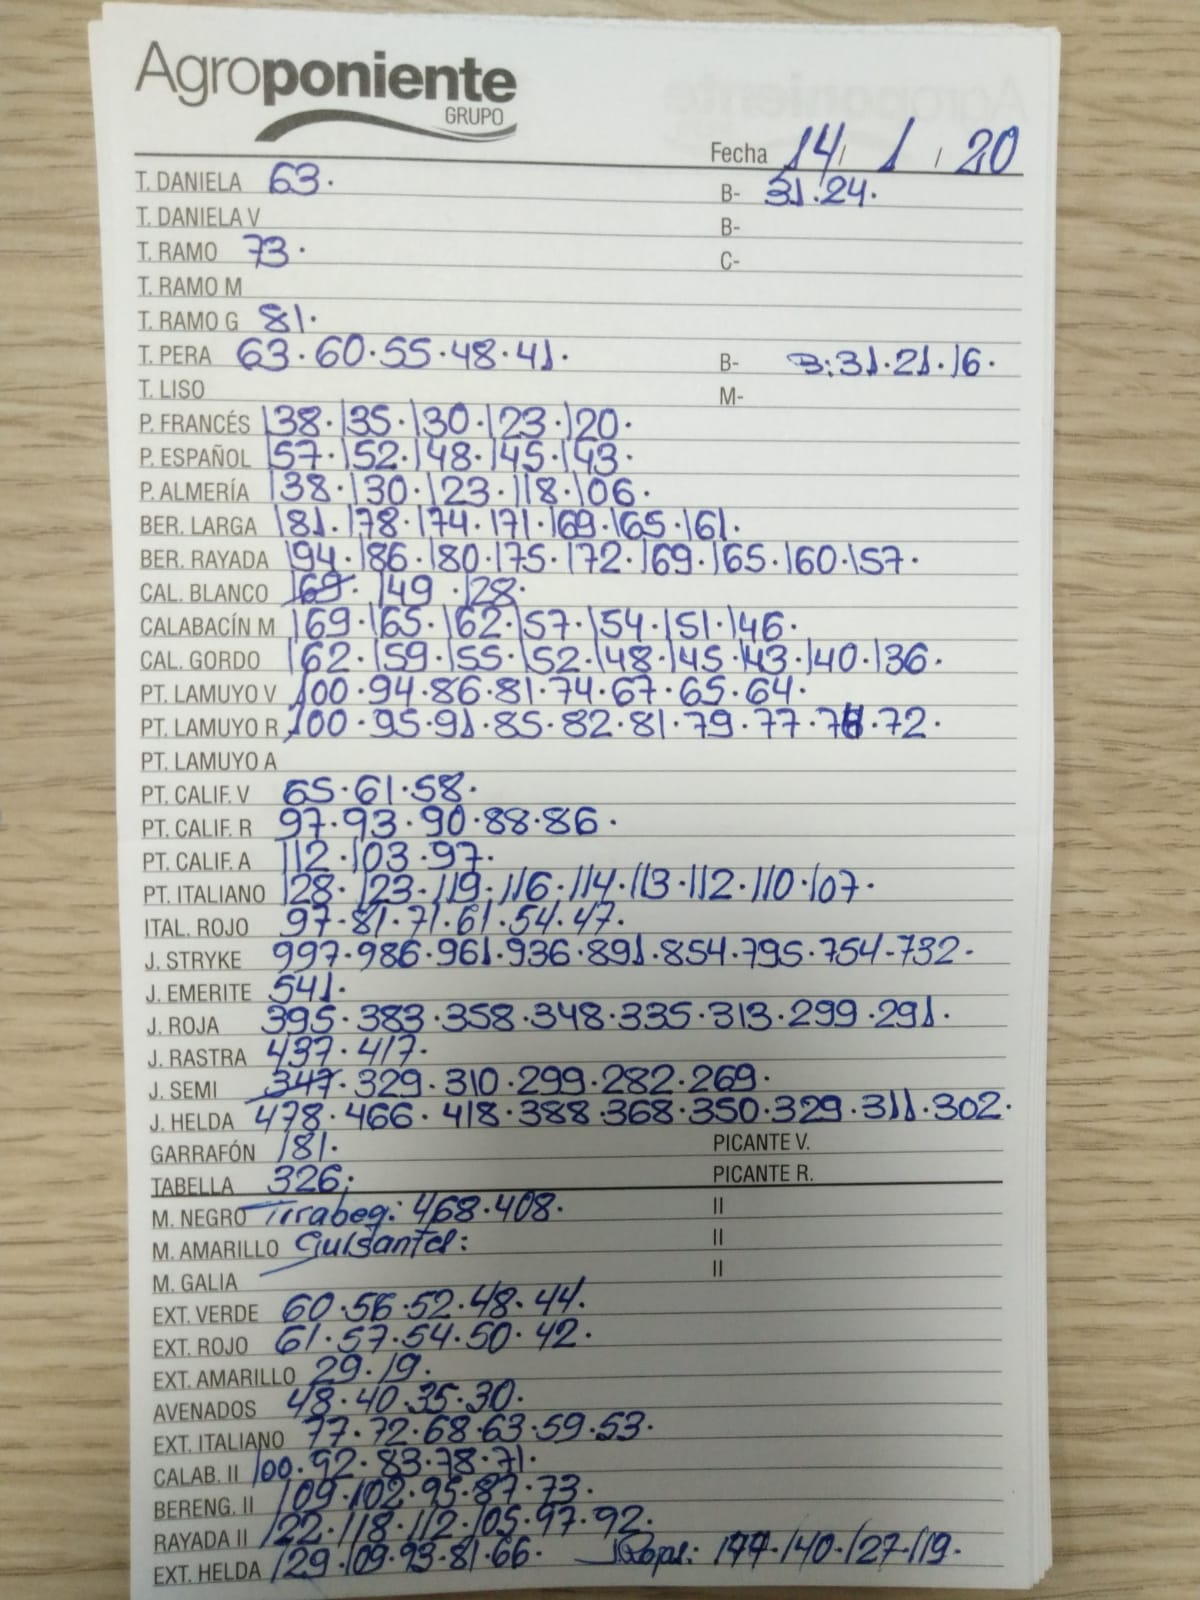 Agroponiente
GRUPO
Fecha 14 / 1 / 20
T. DANIELA 63. B- 31.24.
T. DANIELA V B-
T. RAMO 73. C-
T. RAMO M
T. RAMO G 81.
T. PERA 63.60.55.48.41. B- B:31.21.16.
T. LISO M-
P. FRANCÉS 138.135.130.123.120.
P. ESPAÑOL 157.152.148.145.143.
P. ALMERÍA 138.130.123.118.106.
BER. LARGA 181.178.174.171.169.165.161.
BER. RAYADA 194.186.180.175.172.169.165.160.157.
CAL. BLANCO 169.149.128.
CALABACÍN M 169.165.162.157.154.151.146.
CAL. GORDO 162.159.155.152.148.145.143.140.136.
PT. LAMUYO V 100.94.86.81.74.67.65.64.
PT. LAMUYO R 100.95.91.85.82.81.79.77. .72.
PT. LAMUYO A
PT. CALIF. V 65.61.58.
PT. CALIF. R 97.93.90.88.86.
PT. CALIF. A 112.103.97.
PT. ITALIANO 128.123.119.116.114.113.112.110.107.
ITAL. ROJO 97.81.71.61.54.47.
J. STRYKE 997.986.961.936.891.854.795.754-732-
J. EMERITE 541.
J. ROJA 395.383.358.348.335.313.299.291.
J. RASTRA 437.417.
J. SEMI 347.329.310.299.282.269.
J. HELDA 478.466.418.388.368.350.329.311.302.
GARRAFÓN 181. PICANTE V.
TABELLA 326. PICANTE R.
M. NEGRO Tirabeq: 468.408. II
M. AMARILLO Guisantes: II
M. GALIA II
EXT. VERDE 60.56.52.48.44.
EXT. ROJO 61.57.54.50.42.
EXT. AMARILLO 29.19.
AVENADOS 48.40.35.30.
EXT. ITALIANO 77.72.68.63.59.53.
CALAB. II 100.92.83.78.71.
BERENG. II 109.102.95.87.73.
RAYADA II 122.118.112.105.97.92.
EXT. HELDA 129.109.93.81.66. 140.127.119.